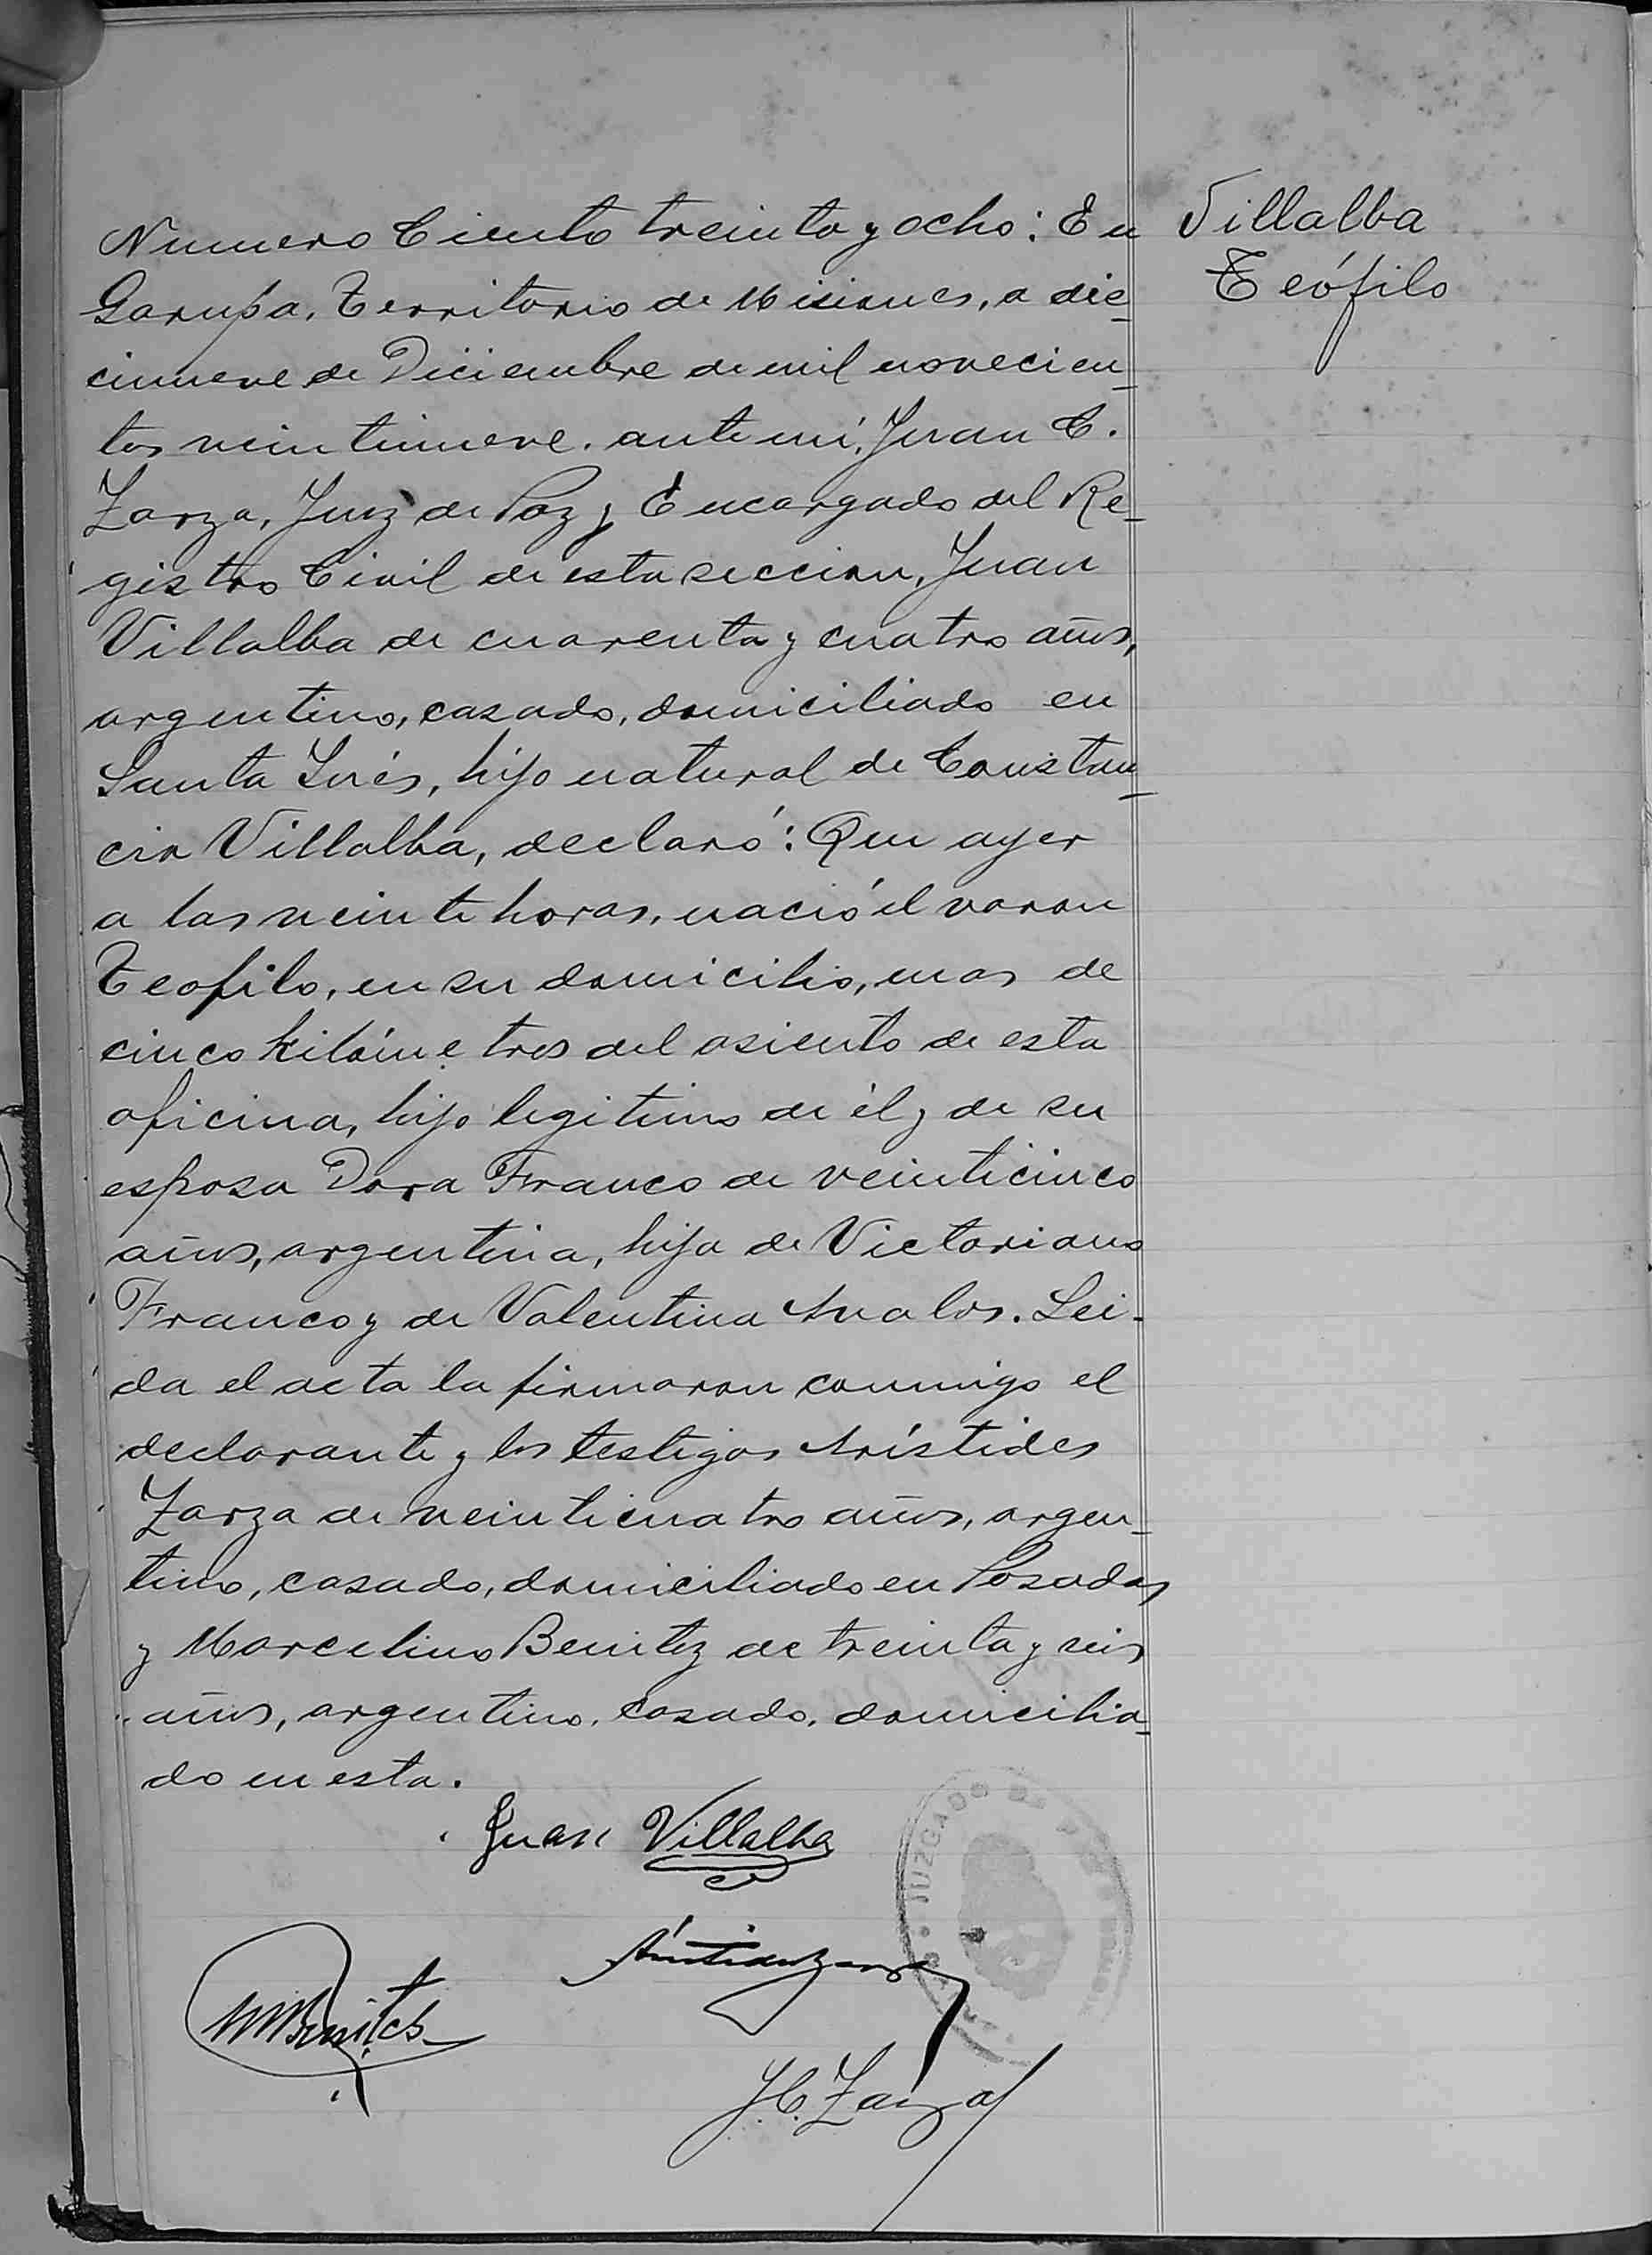 Villalba
Teófilo
Numero Ciento treinta y ocho: En
Garupa, Territorio de Misiones, a die_
cinueve de Diciembre de mil novecien_
tos veintinueve. ante mí, Juan C.
Zarza, Juez de Paz y Encargado del Re_
gistro Civil de esta seccion, Juan
Villalba de cuarenta y cuatro años,
argentino, casado, domiciliado en
Santa Inés, hijo natural de Constan_
cia Villalba, declaró: Que ayer
a las veinte horas, nació el varon
Teofilo, en su domicilio, mas de
cinco kilómetros del asiento de esta
oficina, hijo legitimo de él y de su
esposa Dora Franco de veinticinco
años, argentina, hija de Victoriano
Franco y de Valentina Avalos. Lei-
da el acta la firmaron conmigo el
declarante y los testigos Arístides
Zarza de veinticuatro años, argen_
tino, casado, domiciliado en Posadas
y Marcelino Benitez de treinta y seis
años, argentino, casado, domicilia_
do en esta.
Juan Villalba
MBenitez
J.C. Zarza
JUZGADO DE